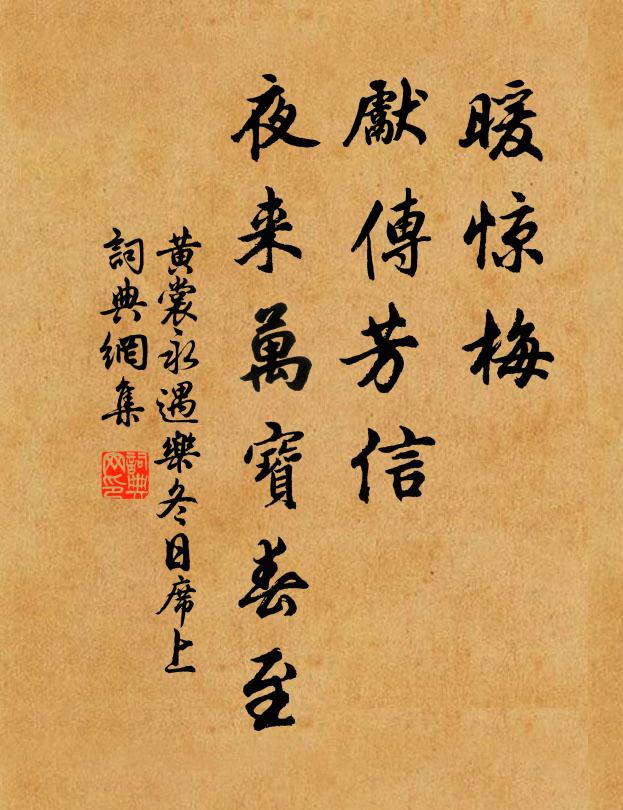 暖惊梅
獻傳芳信
夜来萬寶春至
黄裳永遇樂冬日席上
詞典網集
詞典
网印